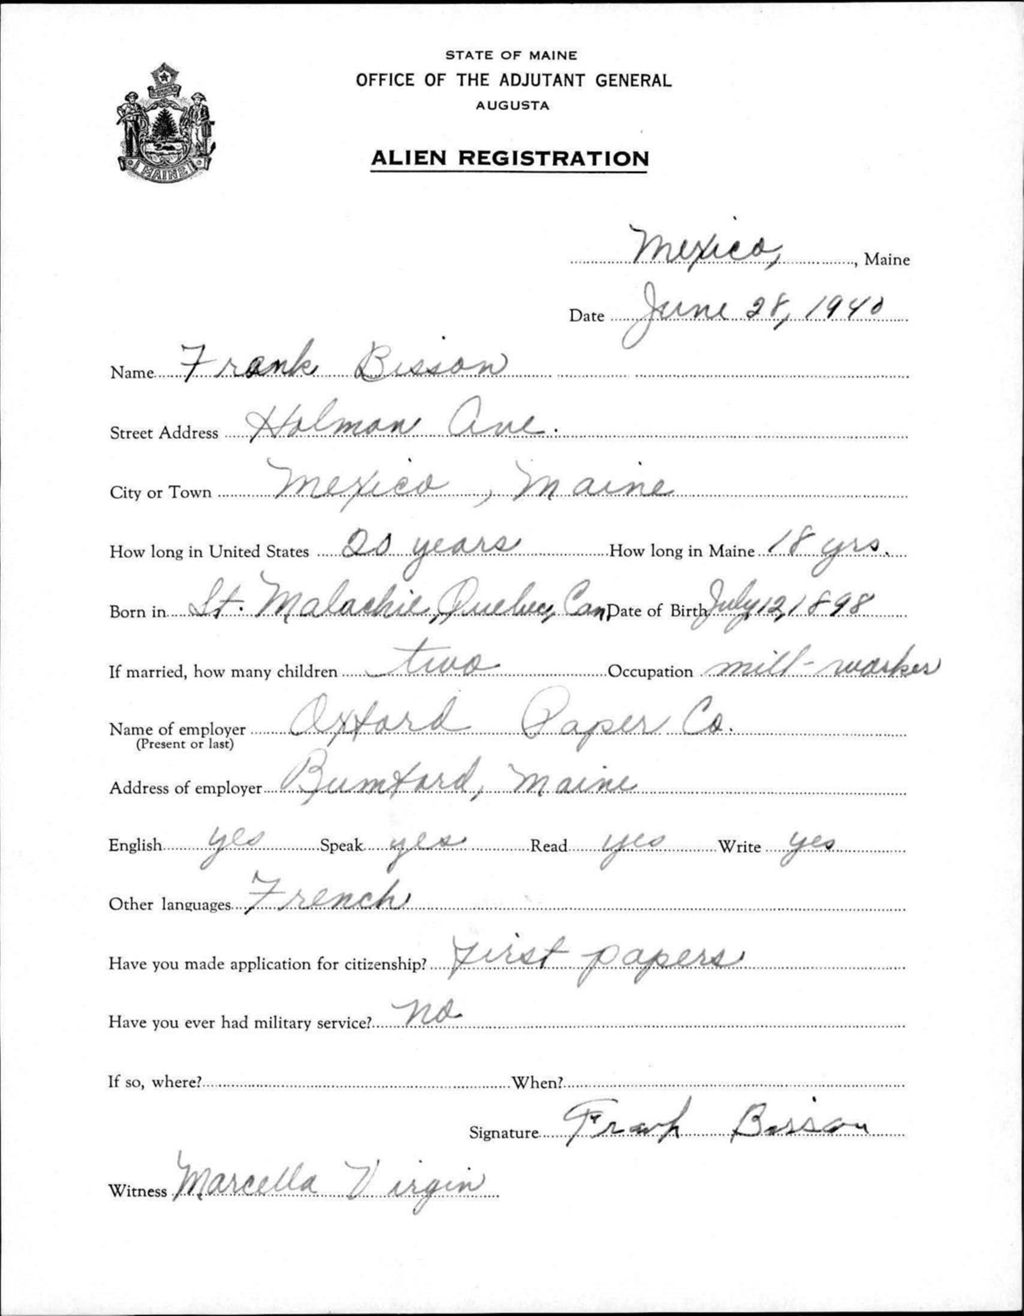 STATE OF MAINE
OFFICE OF THE ADJUTANT GENERAL
AUGUSTA
ALIEN REGISTRATION
MAINE
Mexico, , Maine
Date June 28, 1940
Name Frank Bisson
Street Address Holman Ave.
City or Town Mexico, Maine
How long in United States 20 years How long in Maine 18 yrs.
Born in St. Malachie, Quebec, Can Date of Birth July 12, 1898
If married, how many children two Occupation mill-worker
Name of employer Oxford Paper Co.
(Present or last)
Address of employer Rumford, Maine
English yes Speak yes Read yes Write yes
Other languages French
Have you made application for citizenship? First papers
Have you ever had military service? No
If so, where? When?
Signature Frank Bisson
Witness Marcella Virgin